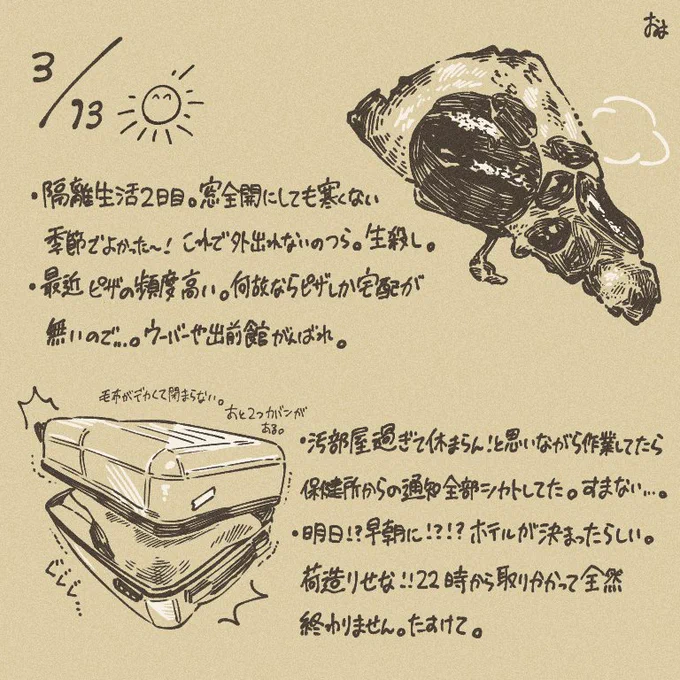 おは
3/13
・隔離生活2日目。窓全開にしても寒くない
季節でよかった〜！これで外出れないのつら。生殺し。
・最近ピザの頻度高い。何故ならピザしか宅配が
無いので...。ウーバーや出前館がんばれ。
毛布がデカくて閉まらない。
あと2つカバンが
ある。
・汚部屋過ぎて休まらん!と思いながら作業してたら
保健所からの通知全部シカトしてた。すまない...。
・明日!?早朝に!?!?ホテルが決まったらしい。
荷造りせな!!22時から取りかかって全然
終わりません。たすけて。
ぐぐぐ...